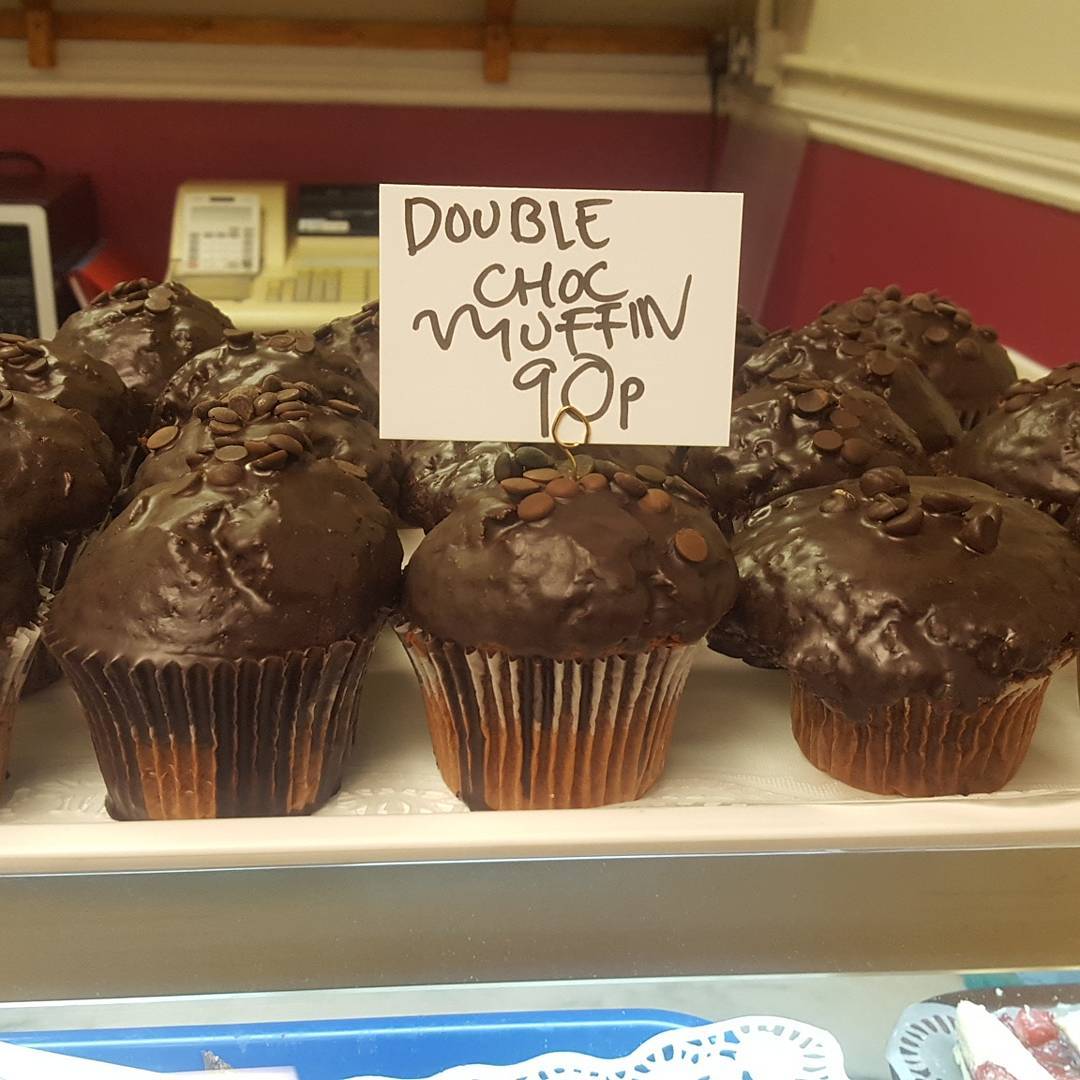 DOUBLE
CHOC
MUFFIN
90p